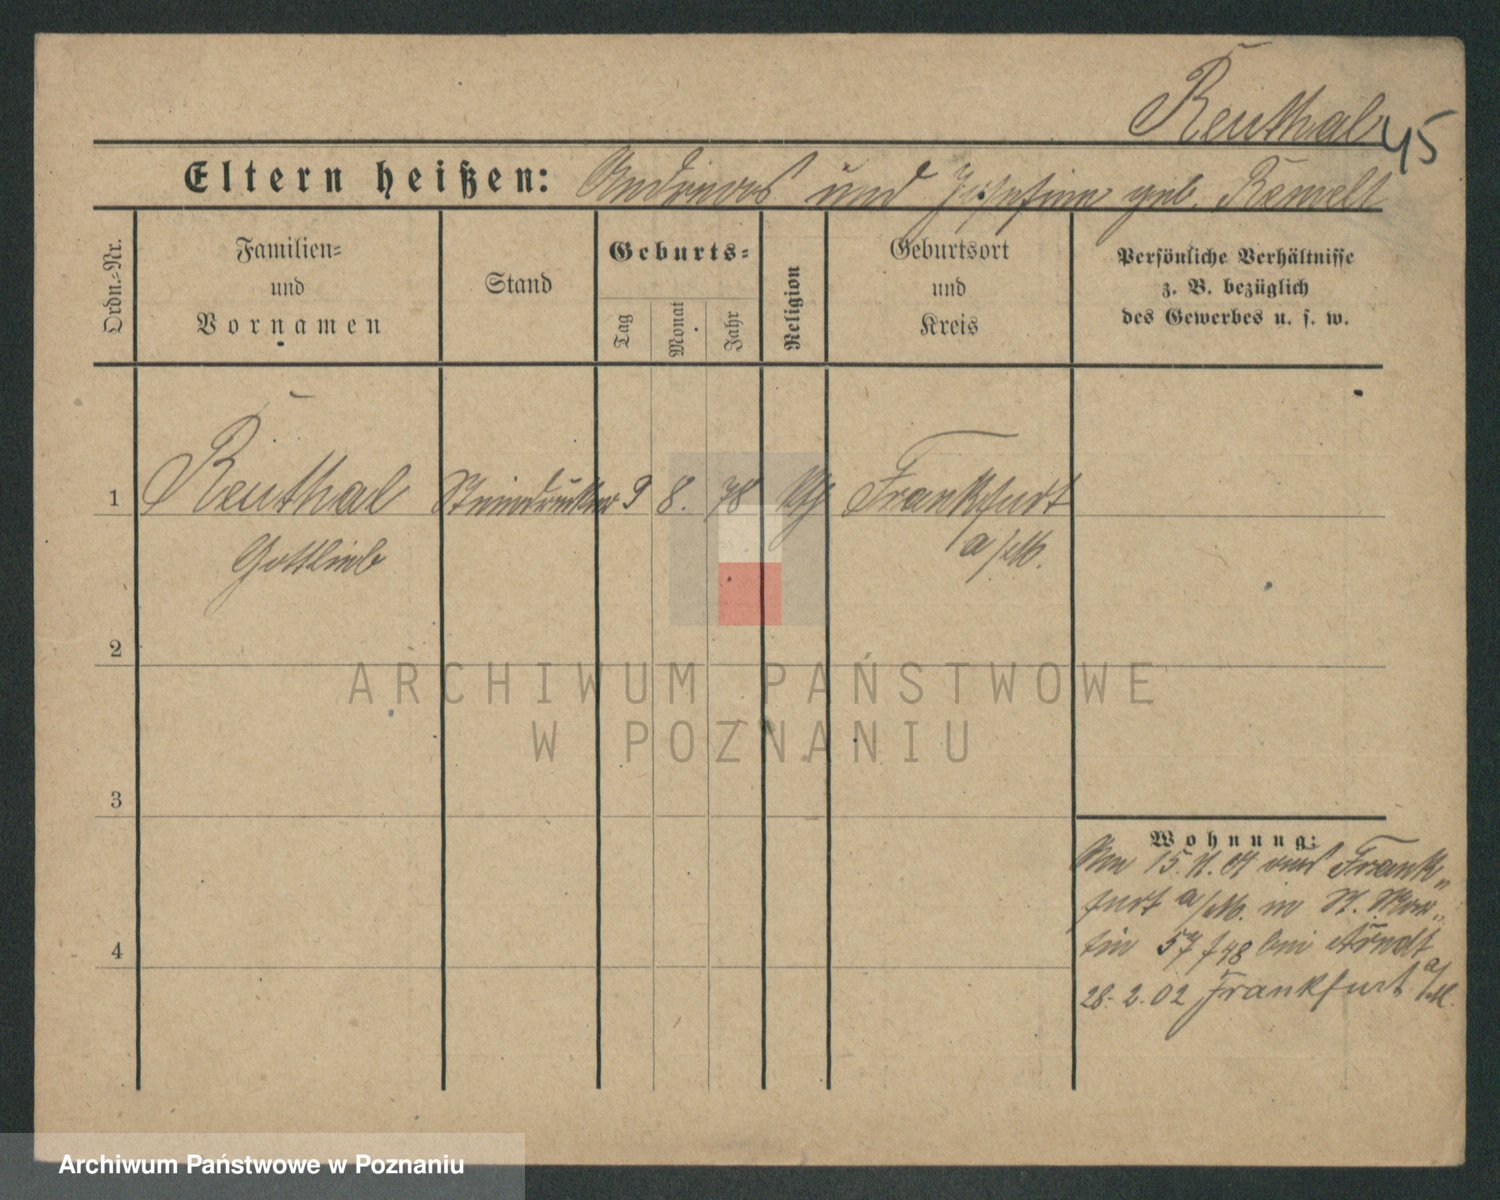 Reuthal
45
Eltern heißen: Andreas und Josefine geb.
Ordn.=Nr.
Familien=
und
Vornamen
Stand
Geburts=
Tag
Monat
Jahr
Religion
Geburtsort
und
Kreis
Persönliche Verhältnisse
z. B. bezüglich
des Gewerbes u. s. w.
1 Reuthal Steindrucker 9 8. 78 Frankfurt
Gottlieb a/M.
2
3
4
Wohnung:
15. 11. 01 aus Frank=
furt a/M. in St. Mar=
tin 57 bei Arndt
28. 2. 02 Frankfurt a/M.
ARCHIWUM PAŃSTWOWE
W POZNANIU
Archiwum Państwowe w Poznaniu